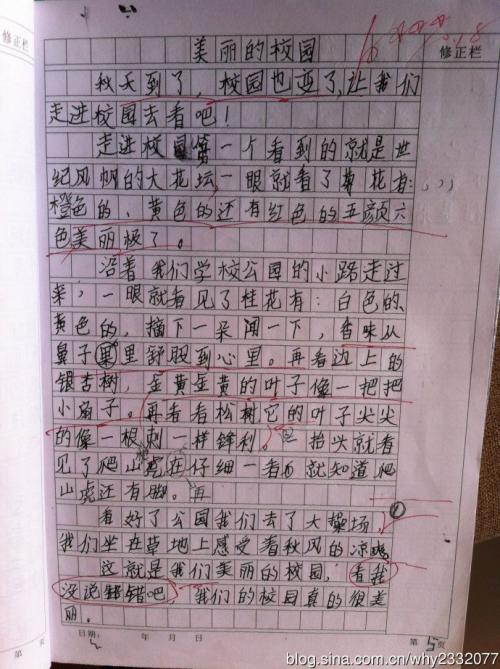 修正栏
修正栏
美丽的校园
秋天到了，校园也变了,让我们
走进校园去看吧！
走进校园第一个看到的就是世
纪风帆的大花坛，一眼就看了菊花有：
橙色的、黄色的还有红色的五颜六
色美丽极了。
沿着我们学校公园的小路走过
来，一眼就看见了桂花有：白色的、
黄色的，摘下一朵闻一下，香味从
鼻子里舒服到心里。再看边上的
银杏树，金黄金黄的叶子像一把把
小扇子。再看看松树它的叶子尖尖
的像一根刺一样锋利。一抬头就看
见了爬山虎在仔细一看就知道爬
山虎还有脚。再
看好了公园我们去了大操场，
我们坐在草地上感受看秋风的凉爽
这就是我们美丽的校园，看我
没说错吧，我们的校园真的很美
丽。
第 页
日期： 年 月 日
第 5 页
blog.sina.com.cn/why2332077